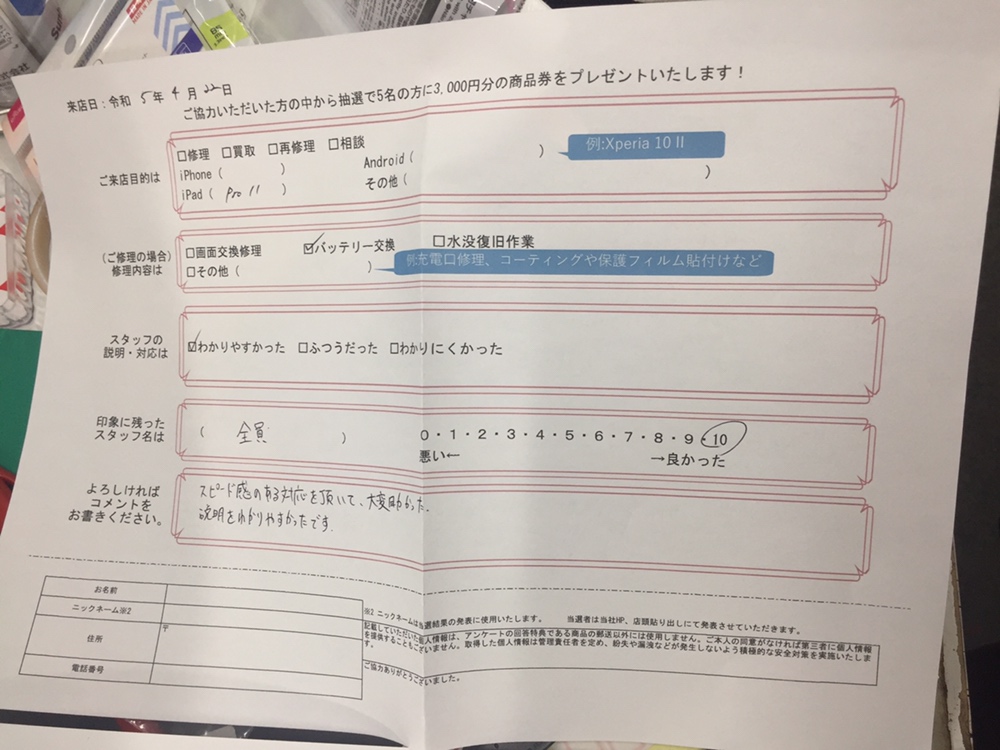 来店日：令和 5年 4月 22日
ご協力いただいた方の中から抽選で5名の方に3,000円分の商品券をプレゼントいたします！
ご来店目的は
□修理 □買取 □再修理 □相談
iPhone（ ） Android（ ） 例:Xperia 10 II
iPad（ Pro 11 ） その他（ ）
（ご修理の場合）
修理内容は
□画面交換修理 ☑バッテリー交換 □水没復旧作業
□その他（ ） 例:充電口修理、コーティングや保護フィルム貼付けなど
スタッフの
説明・対応は
☑わかりやすかった □ふつうだった □わかりにくかった
印象に残った
スタッフ名は
（ 全員 ） 0・1・2・3・4・5・6・7・8・9・10
悪い← →良かった
よろしければ
コメントを
お書きください。
スピード感のある対応を頂いて、大変助かった。
説明もわかりやすかったです。
お名前
ニックネーム※2
住所
〒
電話番号
※2 ニックネームは当選結果の発表に使用いたします。 当選者は当社HP、店頭貼り出しにて発表させていただきます。
記載していただいた個人情報は、アンケートの回答特典である商品の郵送以外には使用しません。ご本人の同意がなければ第三者に個人情報
を提供することもございません。取得した個人情報は管理責任者を定め、紛失や漏洩などが発生しないよう積極的な安全対策を実施いたしま
す。
ご協力ありがとうございました。